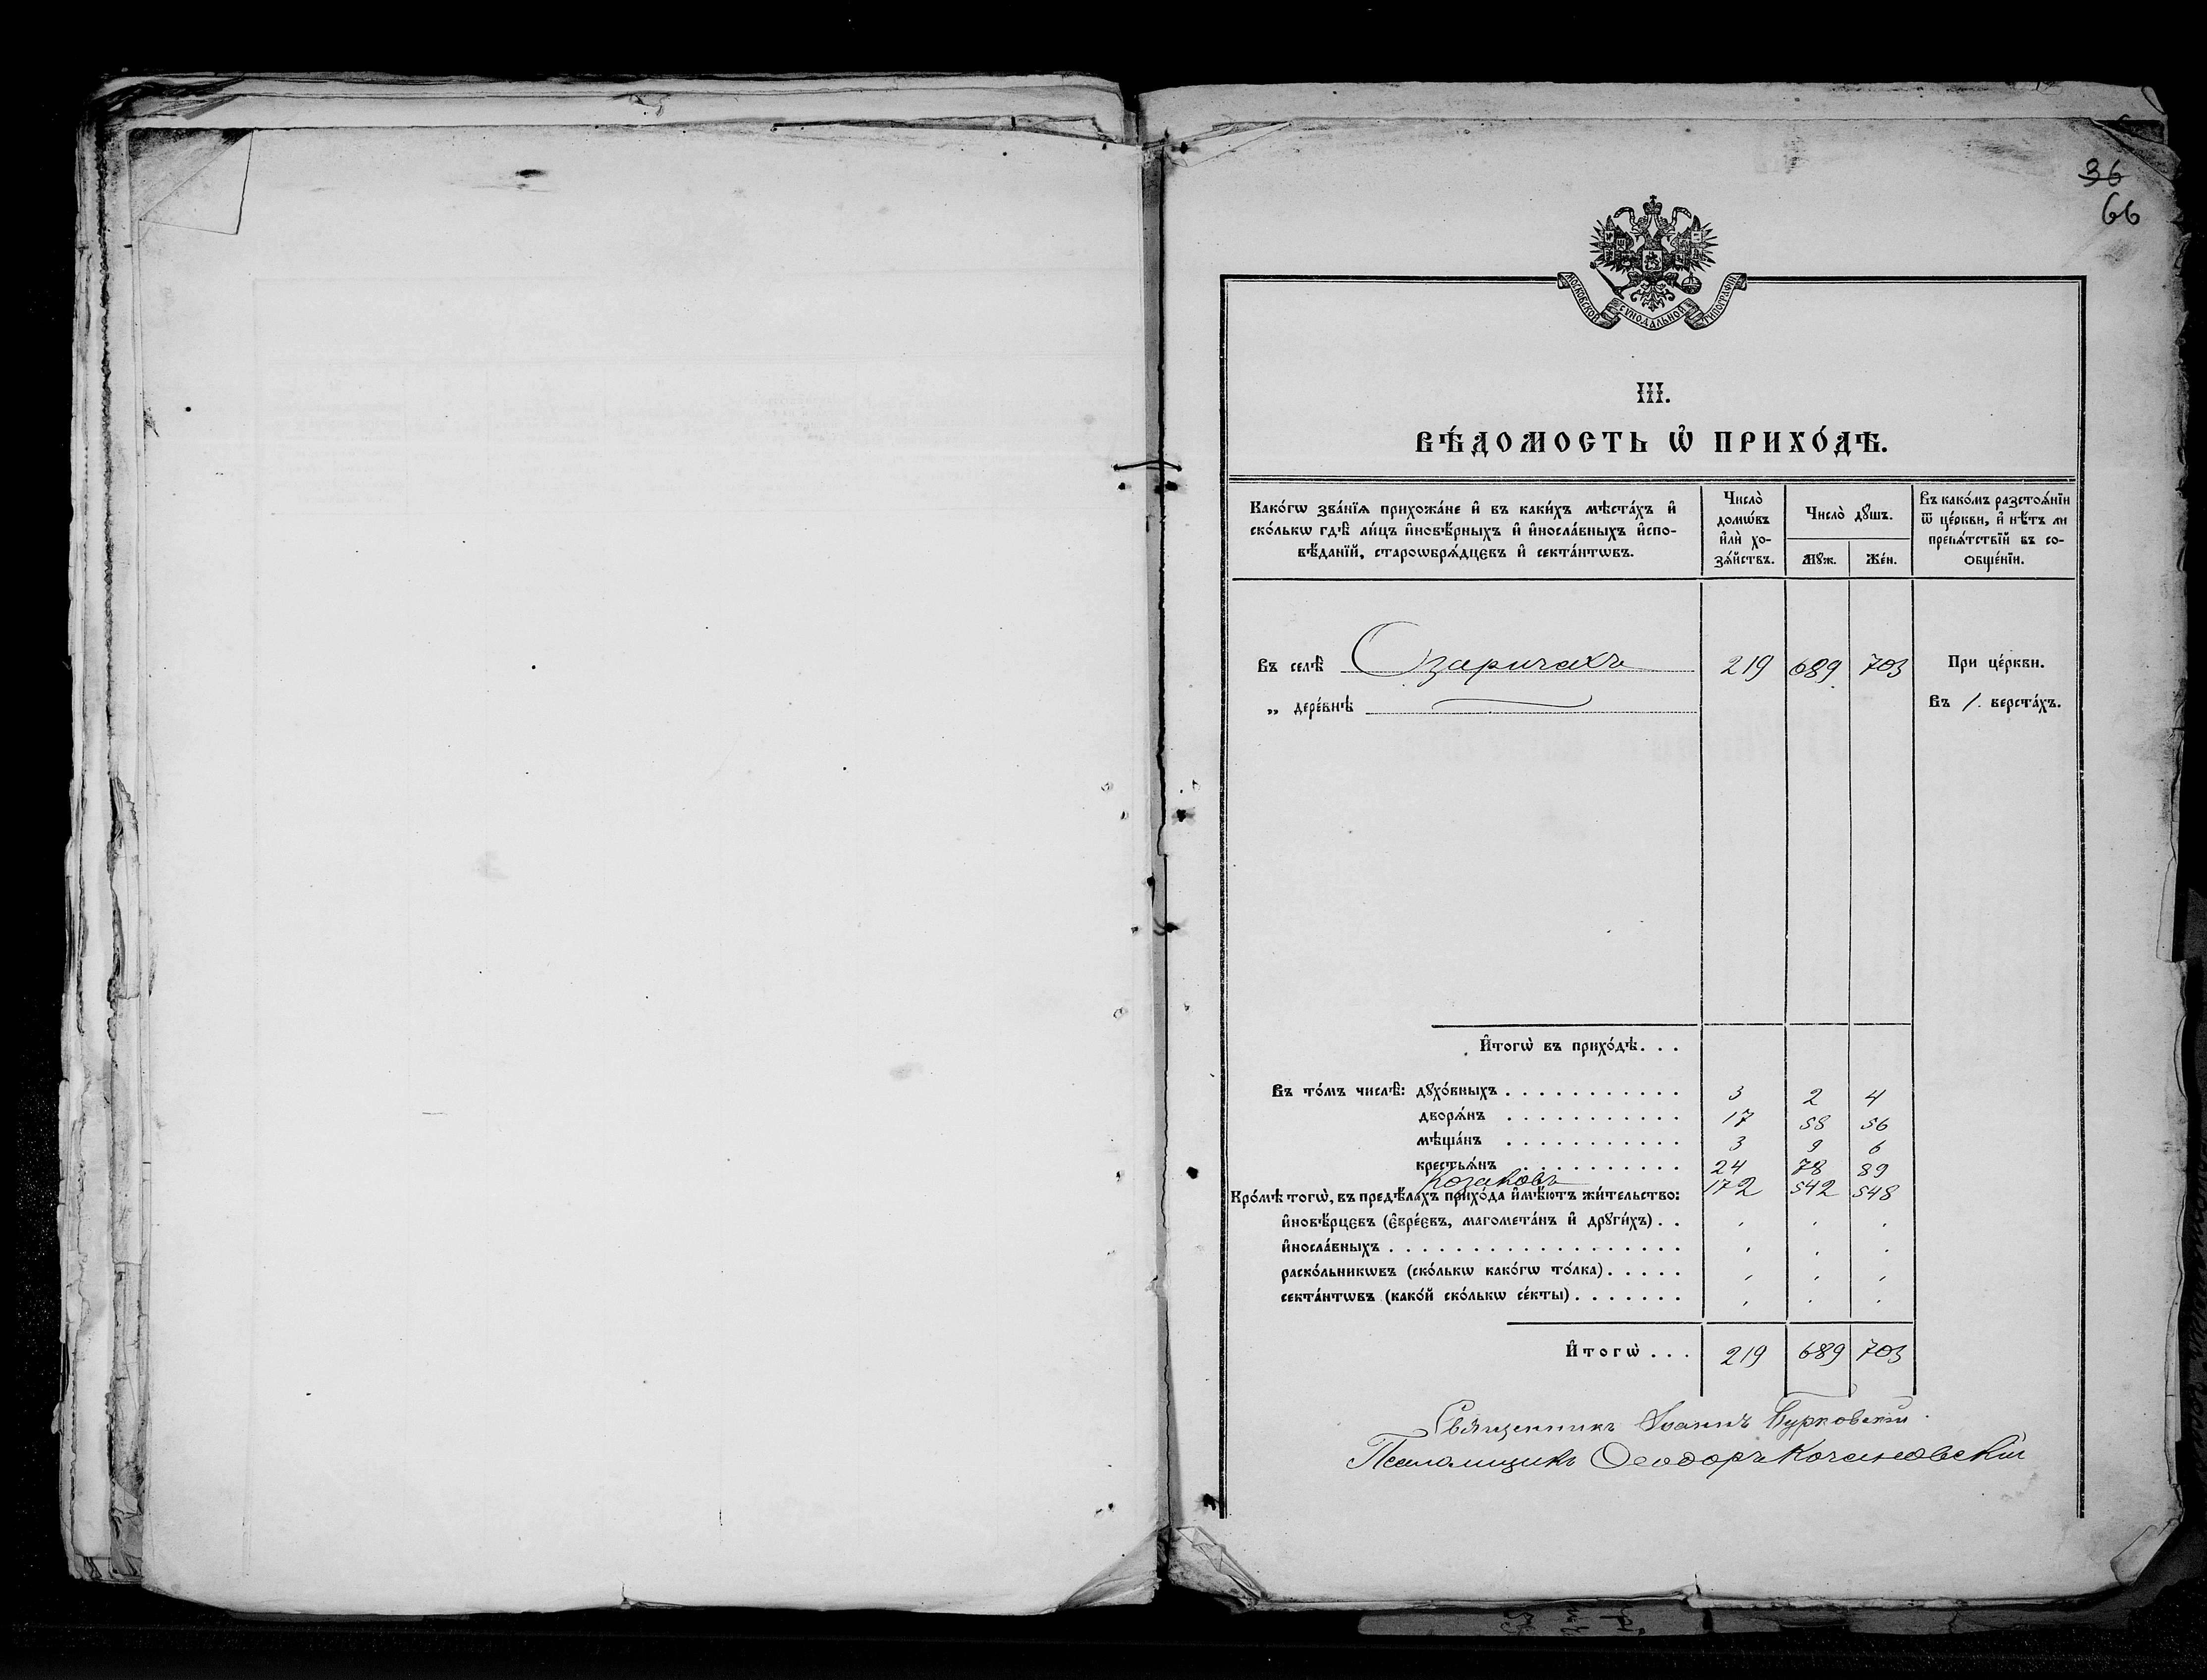 36
66
МОСКОВСКОЙ СѴНОДАЛЬНОЙ ТИПОГРАФІИ
III.
ВѢ́ДОМОСТЬ Ѡ҆ ПРИХО́ДѢ.
Како́гѡ зва́нїѧ прихожа́не и҆ въ каки́хъ мѣста́хъ и҆
ско́лькѡ гдѣ̀ ли́цъ и҆новѣ́рныхъ и҆ и҆носла́вныхъ и҆спо-
вѣ́данїй, староѡбрѧ́дцєвъ и҆ секта́нтѡвъ.
Число̀
домѡ́въ
и҆лѝ хо-
зѧ́йствъ.
Число̀ дꙋ́шъ.
Мꙋ́ж. Же́н.
Въ како́мъ разстоѧ́нїи
ѿ це́ркви, и҆ нѣ́тъ ли
препѧ́тствїй въ со-
общéнїи.
Въ селѣ̀ Озаричахъ 219 689 703 При це́ркви.
„ дере́внѣ Въ /. верста́хъ.
И҆тогѡ̀ въ прихо́дѣ. . .
Въ то́мъ числѣ̀: дꙋхо́вныхъ . . . . . . . . . . . 3 2 4
дворѧ́нъ . . . . . . . . . . . 17 58 56
мѣща́нъ . . . . . . . . . . . 3 9 6
крестьѧ́нъ . . . . . . . . . . . 24 78 89
козаковъ 172 542 548
Кро́мѣ тогѡ̀, въ предѣ́лахъ прихо́да и҆мѣ́ютъ жи́тельство:
и҆новѣ́рцєвъ (є҆вре́євъ, магомета́нъ и҆ дрꙋги́хъ) . .
и҆носла́вныхъ . . . . . . . . . . . . . . . . . .
раско́льникѡвъ (ско́лькѡ како́гѡ то́лка) . . . . .
секта́нтѡвъ (како́й ско́лькѡ се́кты) . . . . . . .
И҆тогѡ̀ . . . 219 689 703
Священникъ Іоаннъ Бурковскій.
Псаломщикъ Ѳеодоръ Кочановскій